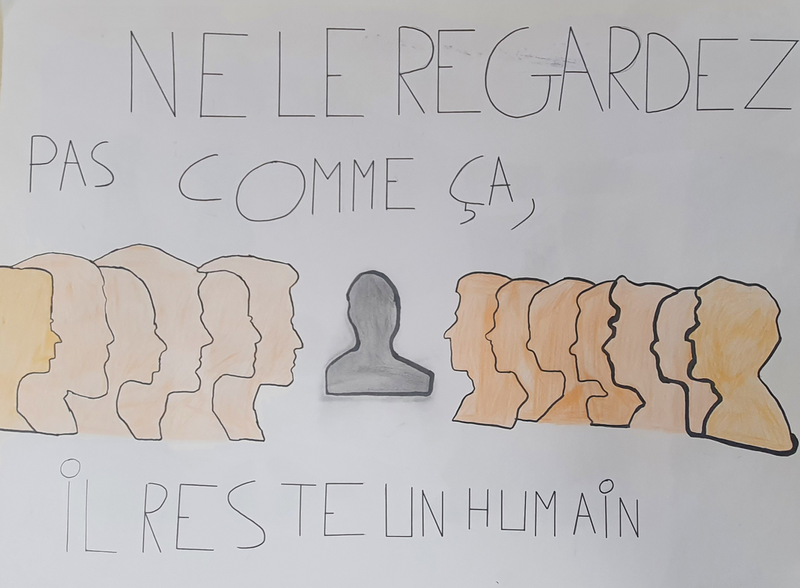 NE LE REGARDEZ
PAS COMME ÇA,
iL RESTE UN HUMAiN